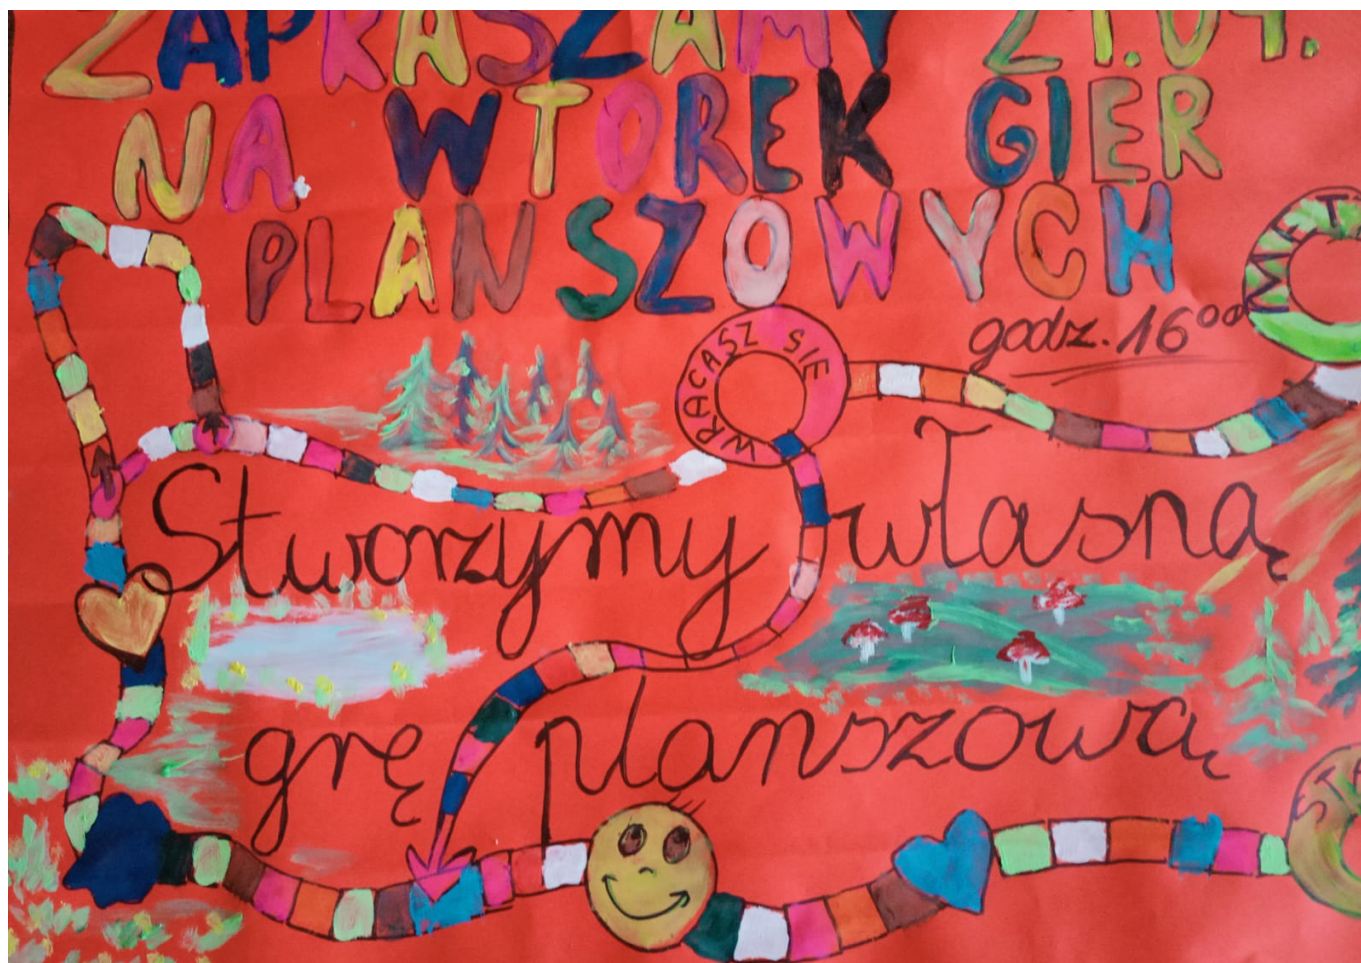 ZAPRASZAMY 21.04.
NA WTOREK GIER
PLANSZOWYCH
godz. 16⁰⁰
MET
WRACASZ SIE
Stworzymy własną
grę planszową
STA